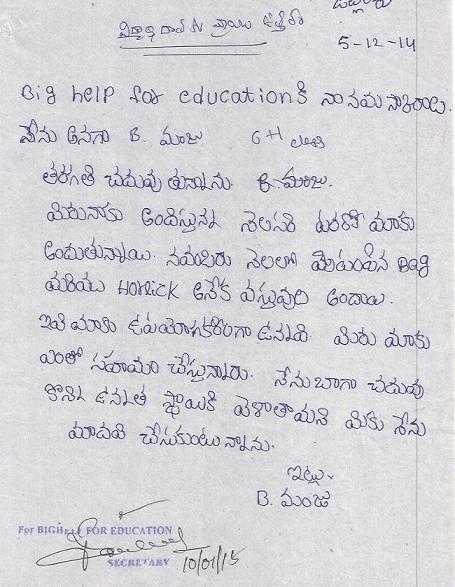 విద్యార్థి దాతకు వ్రాయు ఉత్తరం
5-12-14
Big help for educationకి నా నమస్కారాలు.
నేను అనగా B. మంజు 6th
తరగతి చదువుతున్నాను. B. మంజు.
మీరు నాకు అందిస్తున్న నెలసరి సరుకులు మాకు
అందుతున్నాయి. నవంబరు నెలలో పంపించిన
మరియు HORLICK అనేక వస్తువులు అందాయి.
ఇవి మాకు ఉపయోగకరంగా ఉన్నవి. మీరు మాకు
ఎంతో సహాయం చేస్తున్నారు. నేను బాగా చదువు
కొని ఉన్నత స్థాయికి వెళాతామని మీకు నేను
మాదవి చేసుకుంటున్నాను.
ఇట్లు.
B. మంజు
For BIGHELP FOR EDUCATION
SECRETARY 10/01/15